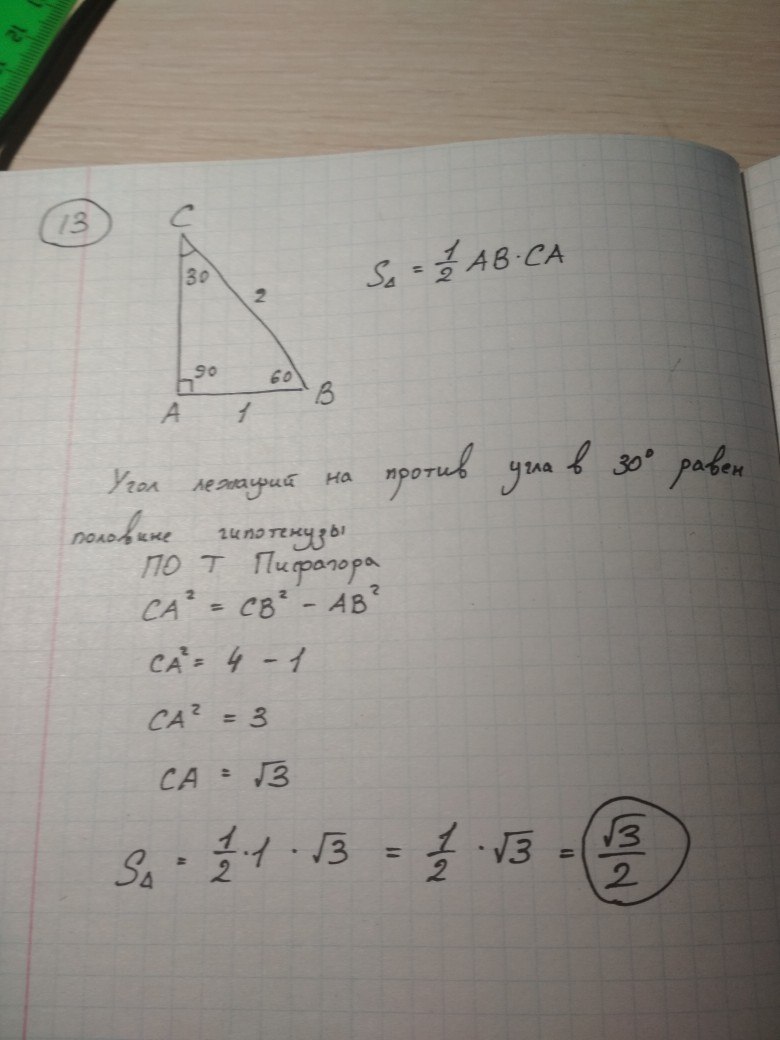 13
C
30
2
90
60
A
1
B
S△ = 1/2 AB · CA
Угол лежащий на против угла в 30° равен
половине гипотенузы
ПО Т Пифагора
CA² = CB² - AB²
CA² = 4 - 1
CA² = 3
CA = √3
S△ = 1/2 · 1 · √3 = 1/2 · √3 = √3/2